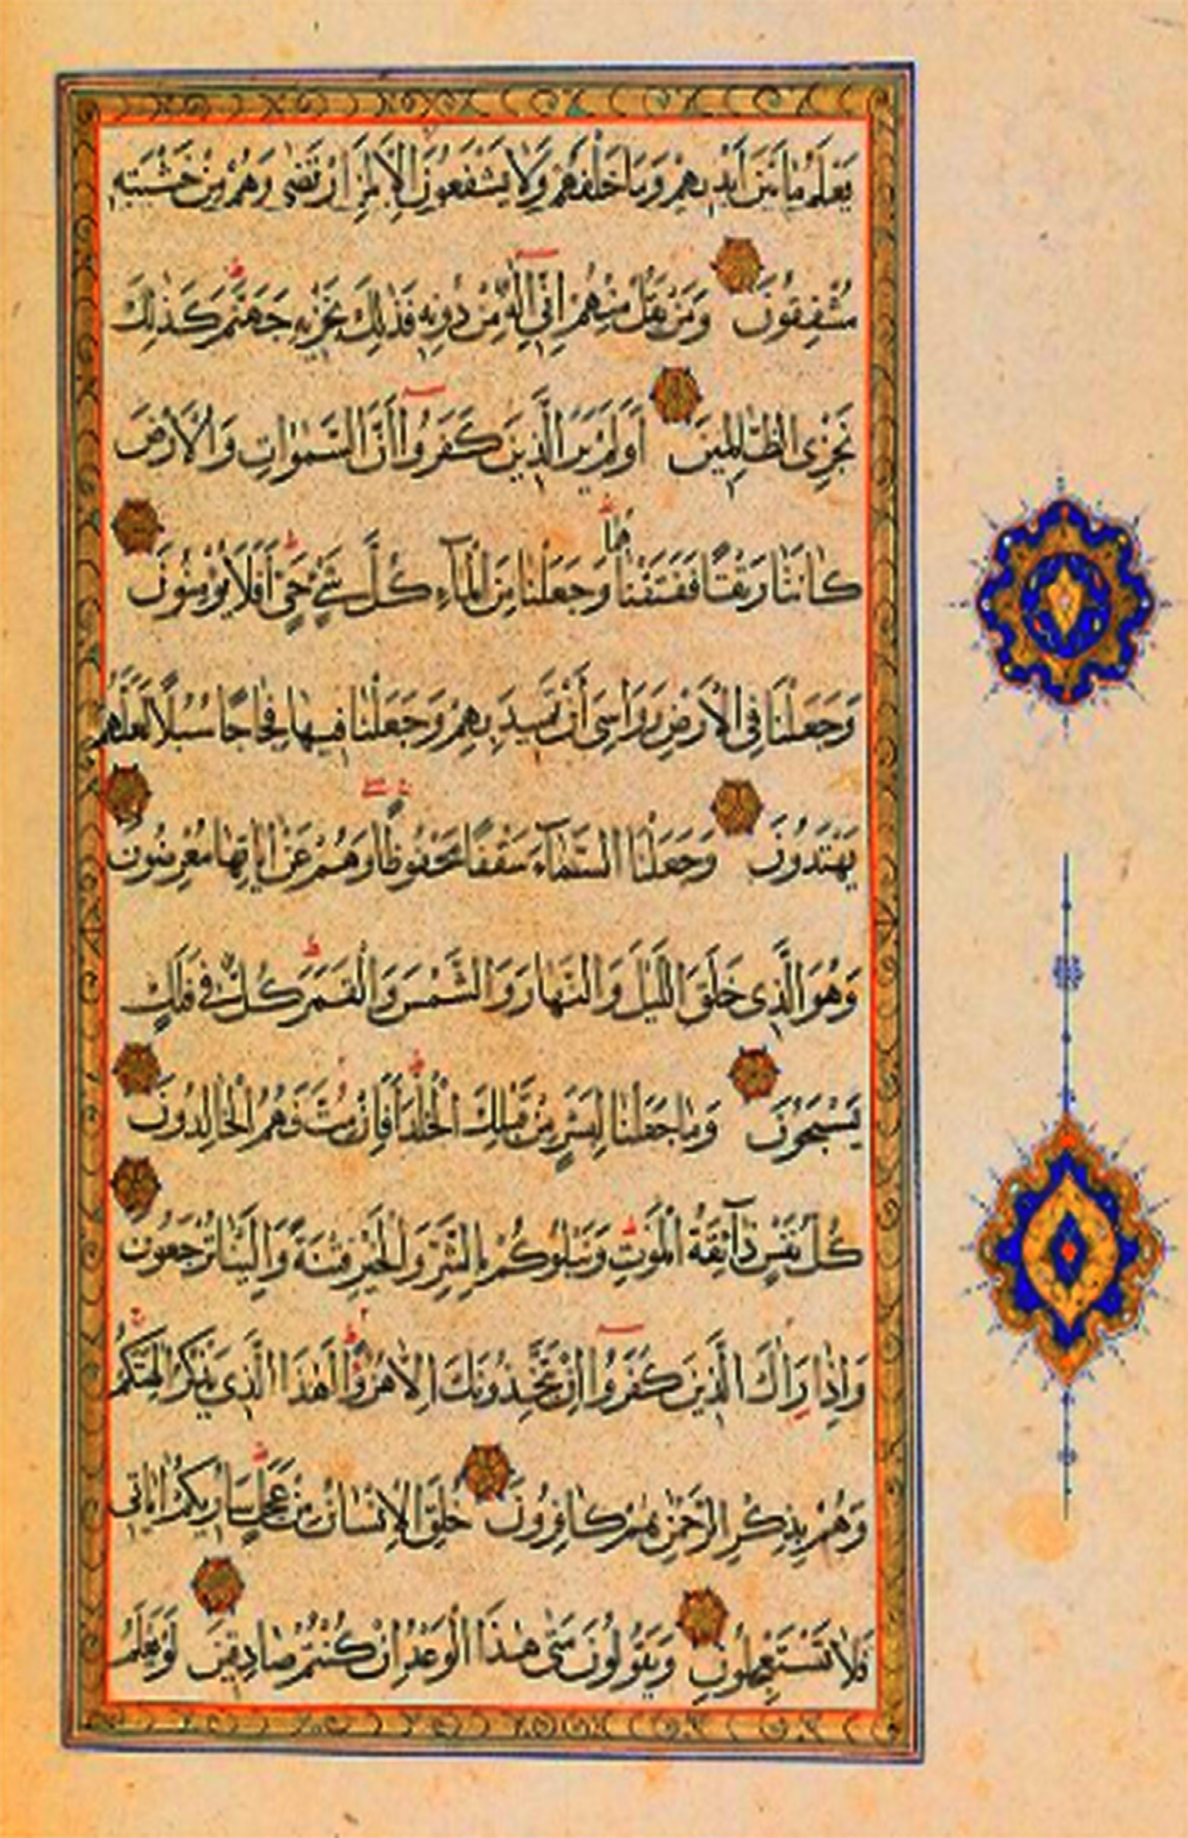 يَعْلَمُ مَا بَيْنَ أَيْدِيهِمْ وَمَا خَلْفَهُمْ وَلَا يَشْفَعُونَ إِلَّا لِمَنِ ارْتَضٰى وَهُمْ مِنْ خَشْيَتِهِ
مُشْفِقُونَ وَمَنْ يَقُلْ مِنْهُمْ إِنِّي إِلٰهٌ مِنْ دُونِهِ فَذٰلِكَ نَجْزِيهِ جَهَنَّمَ كَذٰلِكَ
نَجْزِي الظَّالِمِينَ أَوَلَمْ يَرَ الَّذِينَ كَفَرُوا أَنَّ السَّمٰوَاتِ وَالْأَرْضَ
كَانَتَا رَتْقًا فَفَتَقْنَاهُمَا وَجَعَلْنَا مِنَ الْمَآءِ كُلَّ شَيْءٍ حَيٍّ أَفَلَا يُؤْمِنُونَ
وَجَعَلْنَا فِي الْأَرْضِ رَوَاسِيَ أَنْ تَمِيدَ بِهِمْ وَجَعَلْنَا فِيهَا فِجَاجًا سُبُلًا لَعَلَّهُمْ
يَهْتَدُونَ وَجَعَلْنَا السَّمَآءَ سَقْفًا مَحْفُوظًا وَهُمْ عَنْ اٰيَاتِهَا مُعْرِضُونَ
وَهُوَ الَّذِي خَلَقَ اللَّيْلَ وَالنَّهَارَ وَالشَّمْسَ وَالْقَمَرَ كُلٌّ فِي فَلَكٍ
يَسْبَحُونَ وَمَا جَعَلْنَا لِبَشَرٍ مِنْ قَبْلِكَ الْخُلْدَ أَفَإِنْ مُتَّ فَهُمُ الْخَالِدُونَ
كُلُّ نَفْسٍ ذَآئِقَةُ الْمَوْتِ وَنَبْلُوكُمْ بِالشَّرِّ وَالْخَيْرِ فِتْنَةً وَإِلَيْنَا تُرْجَعُونَ
وَإِذَا رَاٰكَ الَّذِينَ كَفَرُوا إِنْ يَتَّخِذُونَكَ إِلَّا هُزُوًا أَهٰذَا الَّذِي يَذْكُرُ اٰلِهَتَكُمْ
وَهُمْ بِذِكْرِ الرَّحْمٰنِ هُمْ كَافِرُونَ خُلِقَ الْإِنْسَانُ مِنْ عَجَلٍ سَأُرِيكُمْ اٰيَاتِي
فَلَا تَسْتَعْجِلُونِ وَيَقُولُونَ مَتٰى هٰذَا الْوَعْدُ إِنْ كُنْتُمْ صَادِقِينَ لَوْ يَعْلَمُ